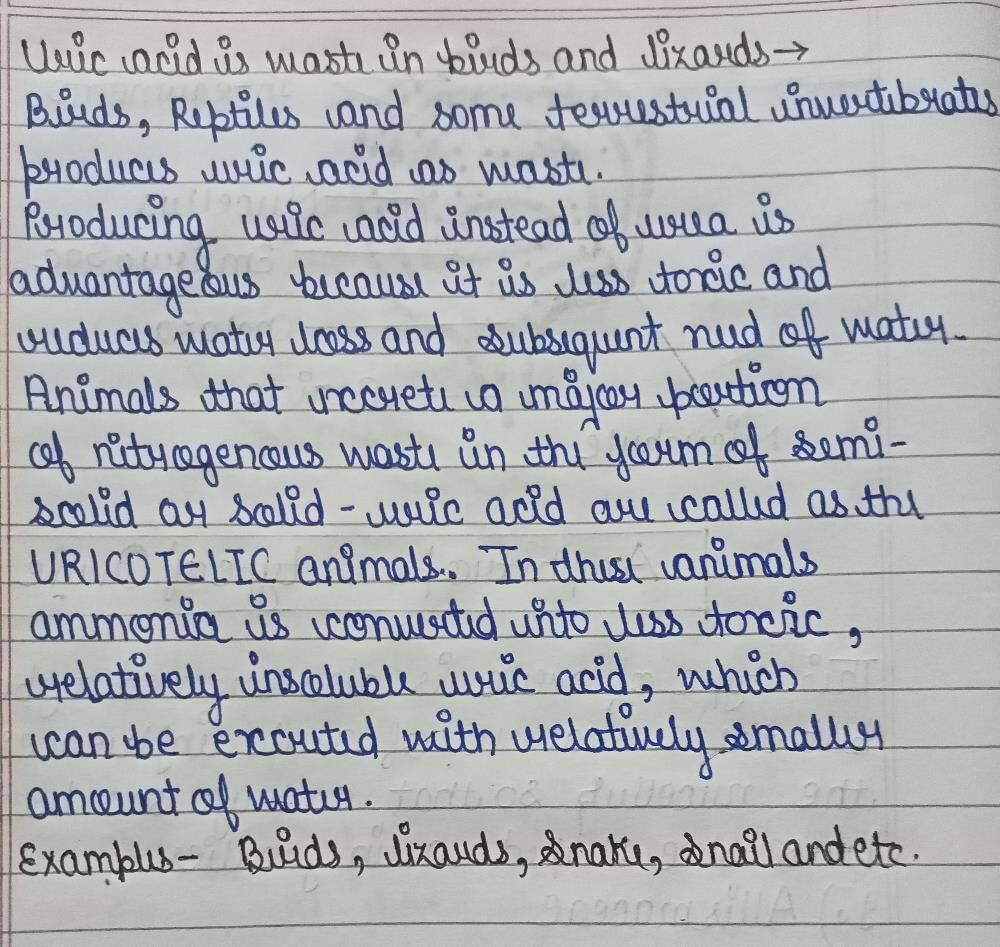 Uric acid is waste in birds and lizards→
Birds, Reptiles and some terrestrial invertibrates
produces uric acid as waste.
Producing uric acid instead of urea is
advantageous because it is less toxic and
reduces water loss and subsequent need of water.
Animals that excrete a major portion
of nitrogenous waste in the form of semi-
solid or solid-uric acid are called as the
URICOTELIC animals. In these animals
ammonia is converted into less toxic,
relatively insoluble uric acid, which
can be excreted with relatively smaller
amount of water.
Examples- Birds, lizards, snake, snail and etc.